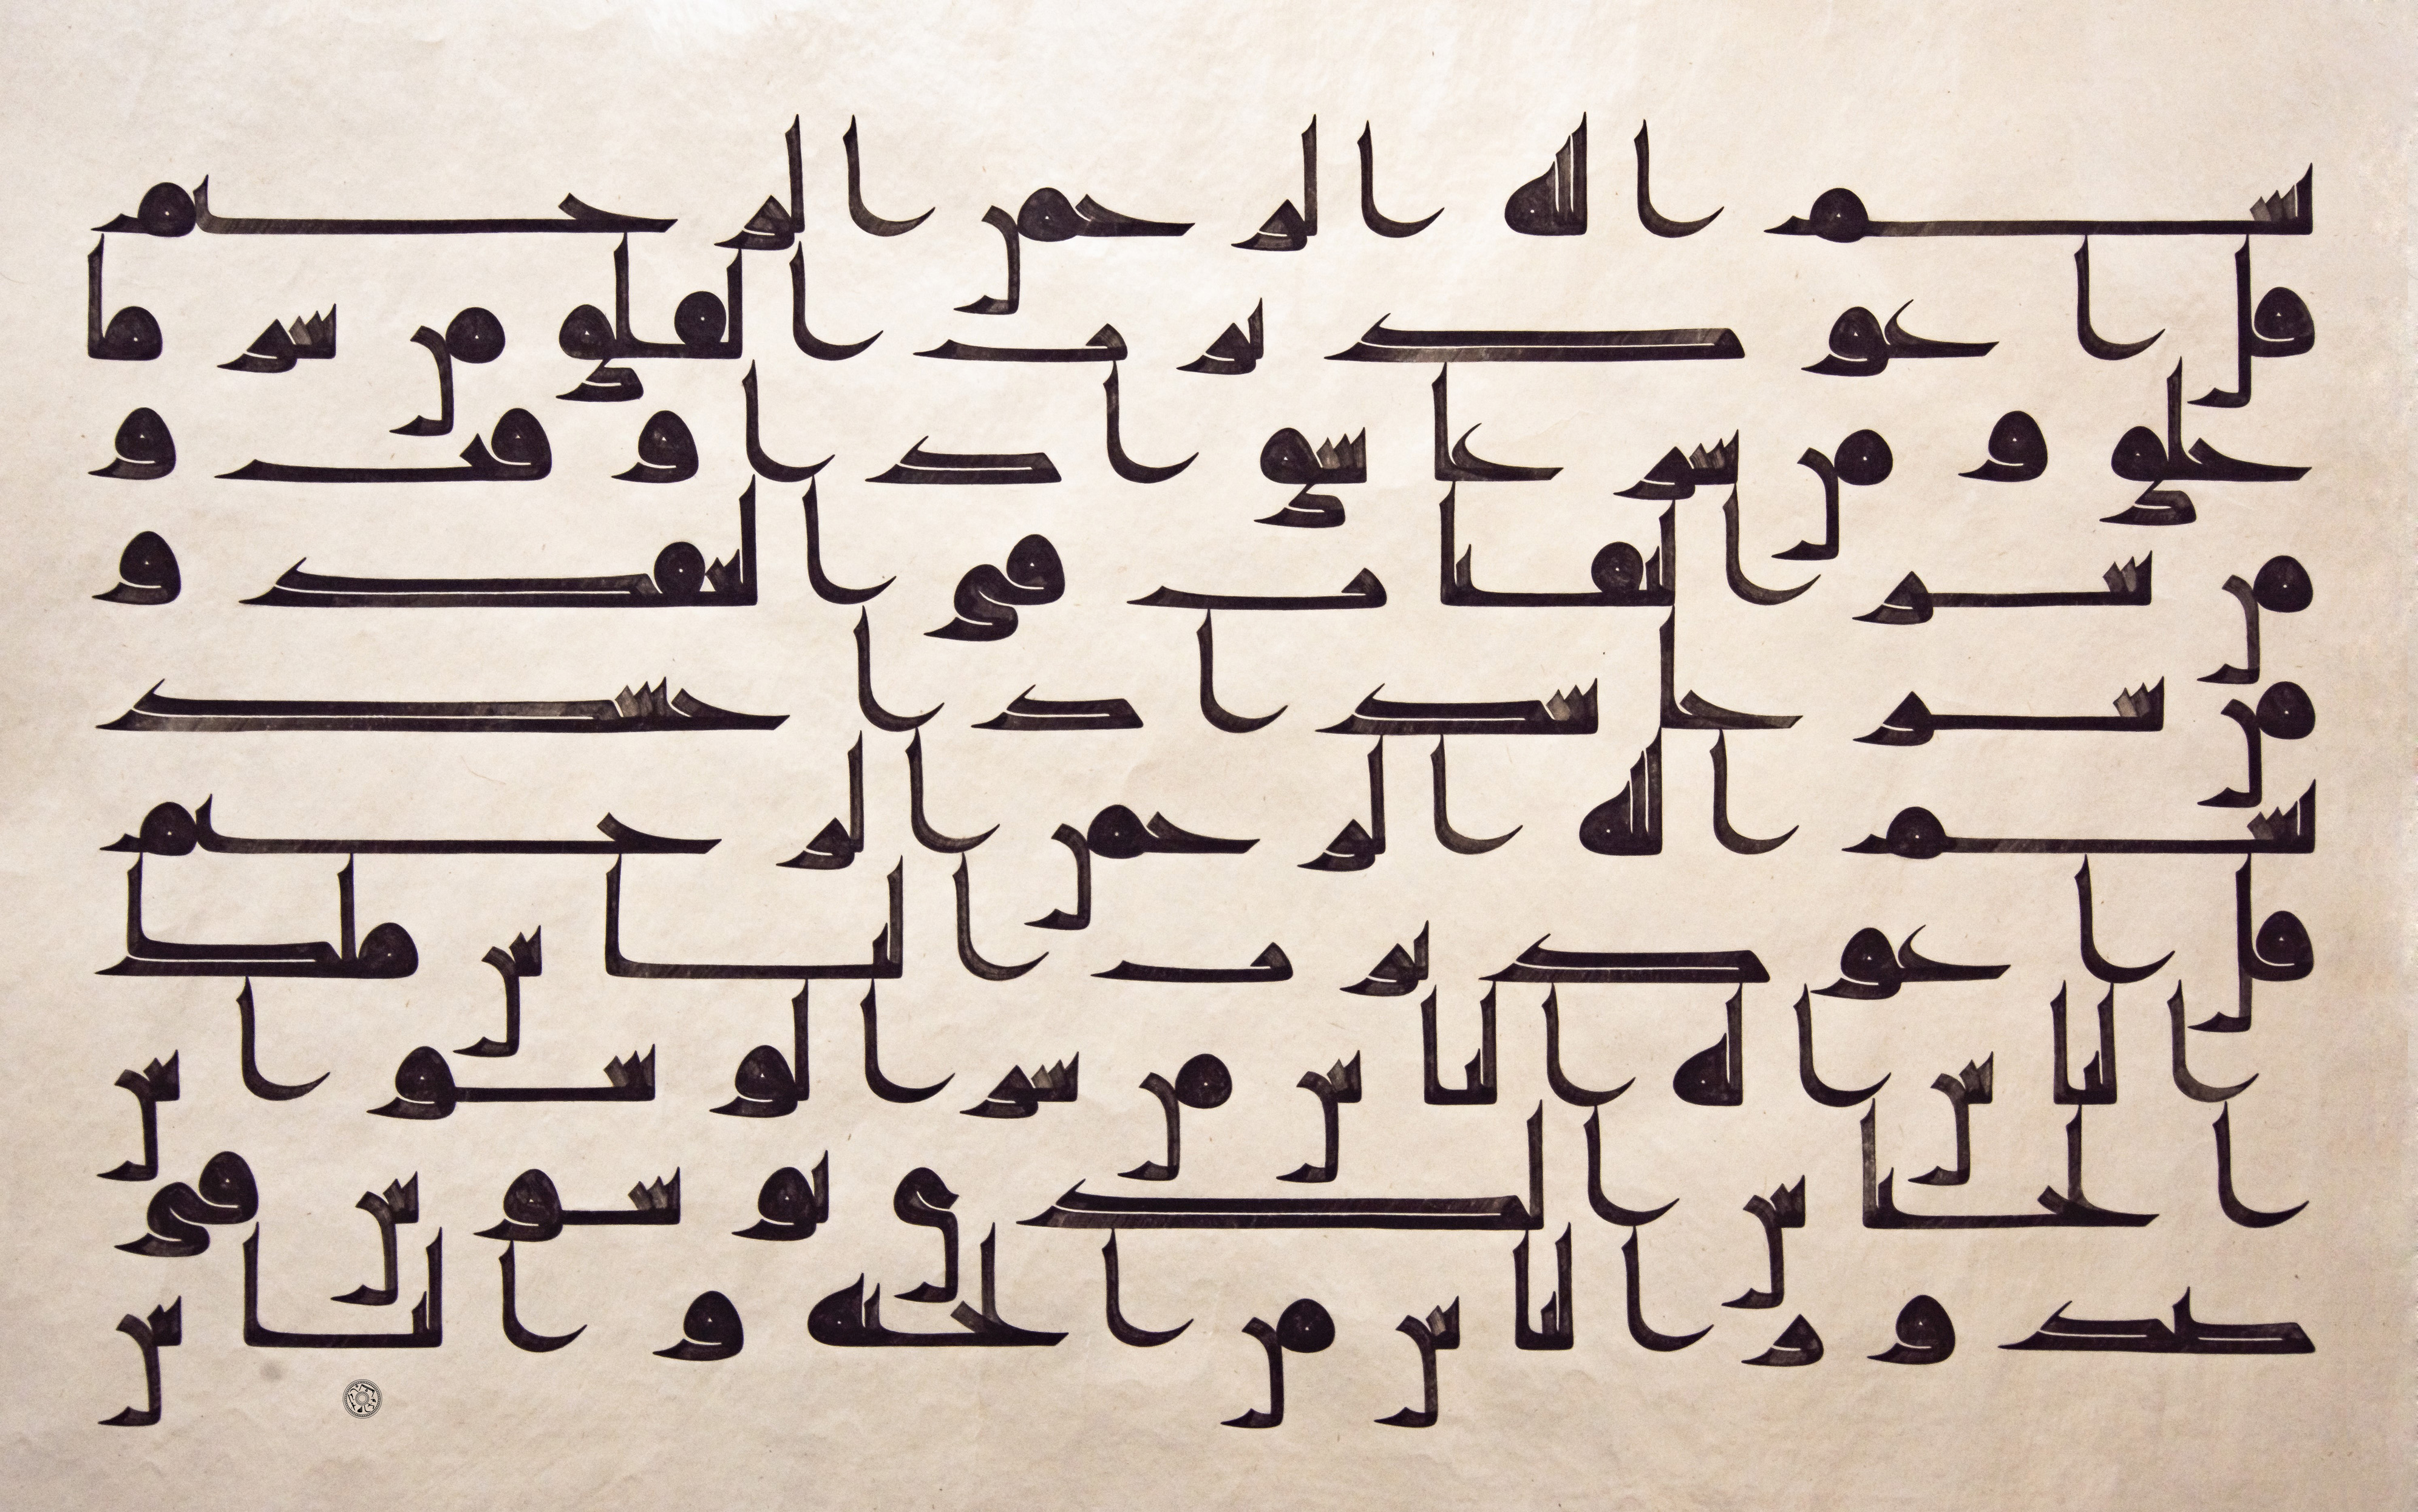 بسم الله الرحمن الرحيم
قل اعوذ برب الفلق من شر ما
خلق و من شر غاسق اذا وقب و
من شر النفثات في العقد و
من شر حاسد اذا حسد
بسم الله الرحمن الرحيم
قل اعوذ برب الناس ملك
الناس اله الناس من شر الوسواس
الخناس الذي يوسوس في
صدور الناس من الجنة و الناس